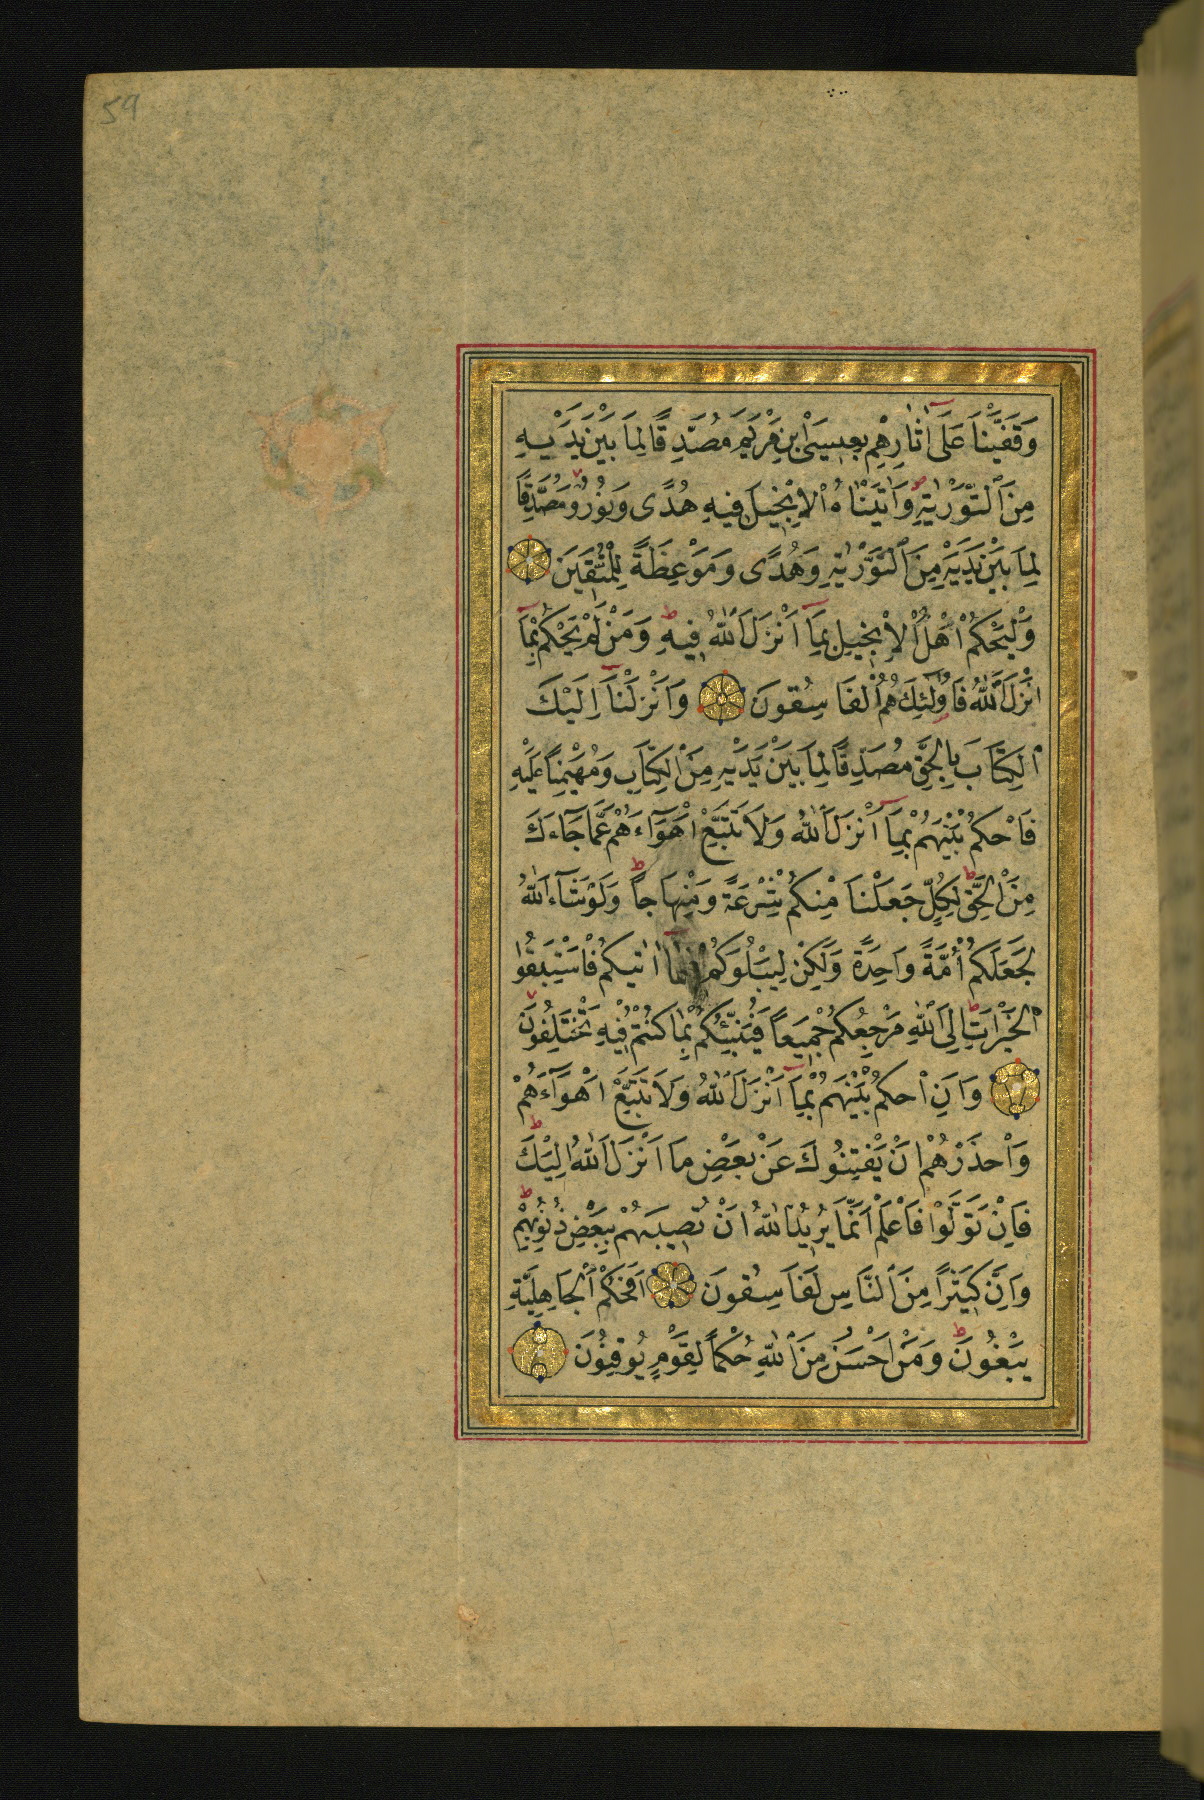 59
وَقَفَّيْنَا عَلَىٰٓ اٰثَارِهِمْ بِعِيسَىْ ابْنِ مَرْيَمَ مُصَدِّقًا لِمَا بَيْنَ يَدَيْهِ
مِنَ التَّوْرٰيةِ وَاٰتَيْنَاهُ الْاِنْجِيلَ فِيهِ هُدًى وَنُورٌ وَمُصَدِّقًا
لِمَا بَيْنَ يَدَيْهِ مِنَ التَّوْرٰيةِ وَهُدًى وَمَوْعِظَةً لِلْمُتَّقِينَ
وَلْيَحْكُمْ اَهْلُ الْاِنْجِيلِ بِمَآ اَنْزَلَ اللّٰهُ فِيهِ وَمَنْ لَمْ يَحْكُمْ بِمَآ
اَنْزَلَ اللّٰهُ فَاُولٰٓئِكَ هُمُ الْفَاسِقُونَ وَاَنْزَلْنَآ اِلَيْكَ
الْكِتَابَ بِالْحَقِّ مُصَدِّقًا لِمَا بَيْنَ يَدَيْهِ مِنَ الْكِتَابِ وَمُهَيْمِنًا عَلَيْهِ
فَاحْكُمْ بَيْنَهُمْ بِمَآ اَنْزَلَ اللّٰهُ وَلَا تَتَّبِعْ اَهْوَآءَهُمْ عَمَّا جَآءَكَ
مِنَ الْحَقِّ لِكُلٍّ جَعَلْنَا مِنْكُمْ شِرْعَةً وَمِنْهَاجًا وَلَوْ شَآءَ اللّٰهُ
لَجَعَلَكُمْ اُمَّةً وَاحِدَةً وَلٰكِنْ لِيَبْلُوَكُمْ فِي مَآ اٰتٰيكُمْ فَاسْتَبِقُوا
الْخَيْرَاتِ اِلَى اللّٰهِ مَرْجِعُكُمْ جَمِيعًا فَيُنَبِّئُكُمْ بِمَا كُنْتُمْ فِيهِ تَخْتَلِفُونَ
وَاَنِ احْكُمْ بَيْنَهُمْ بِمَآ اَنْزَلَ اللّٰهُ وَلَا تَتَّبِعْ اَهْوَآءَهُمْ
وَاحْذَرْهُمْ اَنْ يَفْتِنُوكَ عَنْ بَعْضِ مَا اَنْزَلَ اللّٰهُ اِلَيْكَ
فَاِنْ تَوَلَّوْا فَاعْلَمْ اَنَّمَا يُرِيدُ اللّٰهُ اَنْ يُصِيبَهُمْ بِبَعْضِ ذُنُوبِهِمْ
وَاِنَّ كَثِيرًا مِنَ النَّاسِ لَفَاسِقُونَ اَفَحُكْمَ الْجَاهِلِيَّةِ
يَبْغُونَ وَمَنْ اَحْسَنُ مِنَ اللّٰهِ حُكْمًا لِقَوْمٍ يُوقِنُونَ